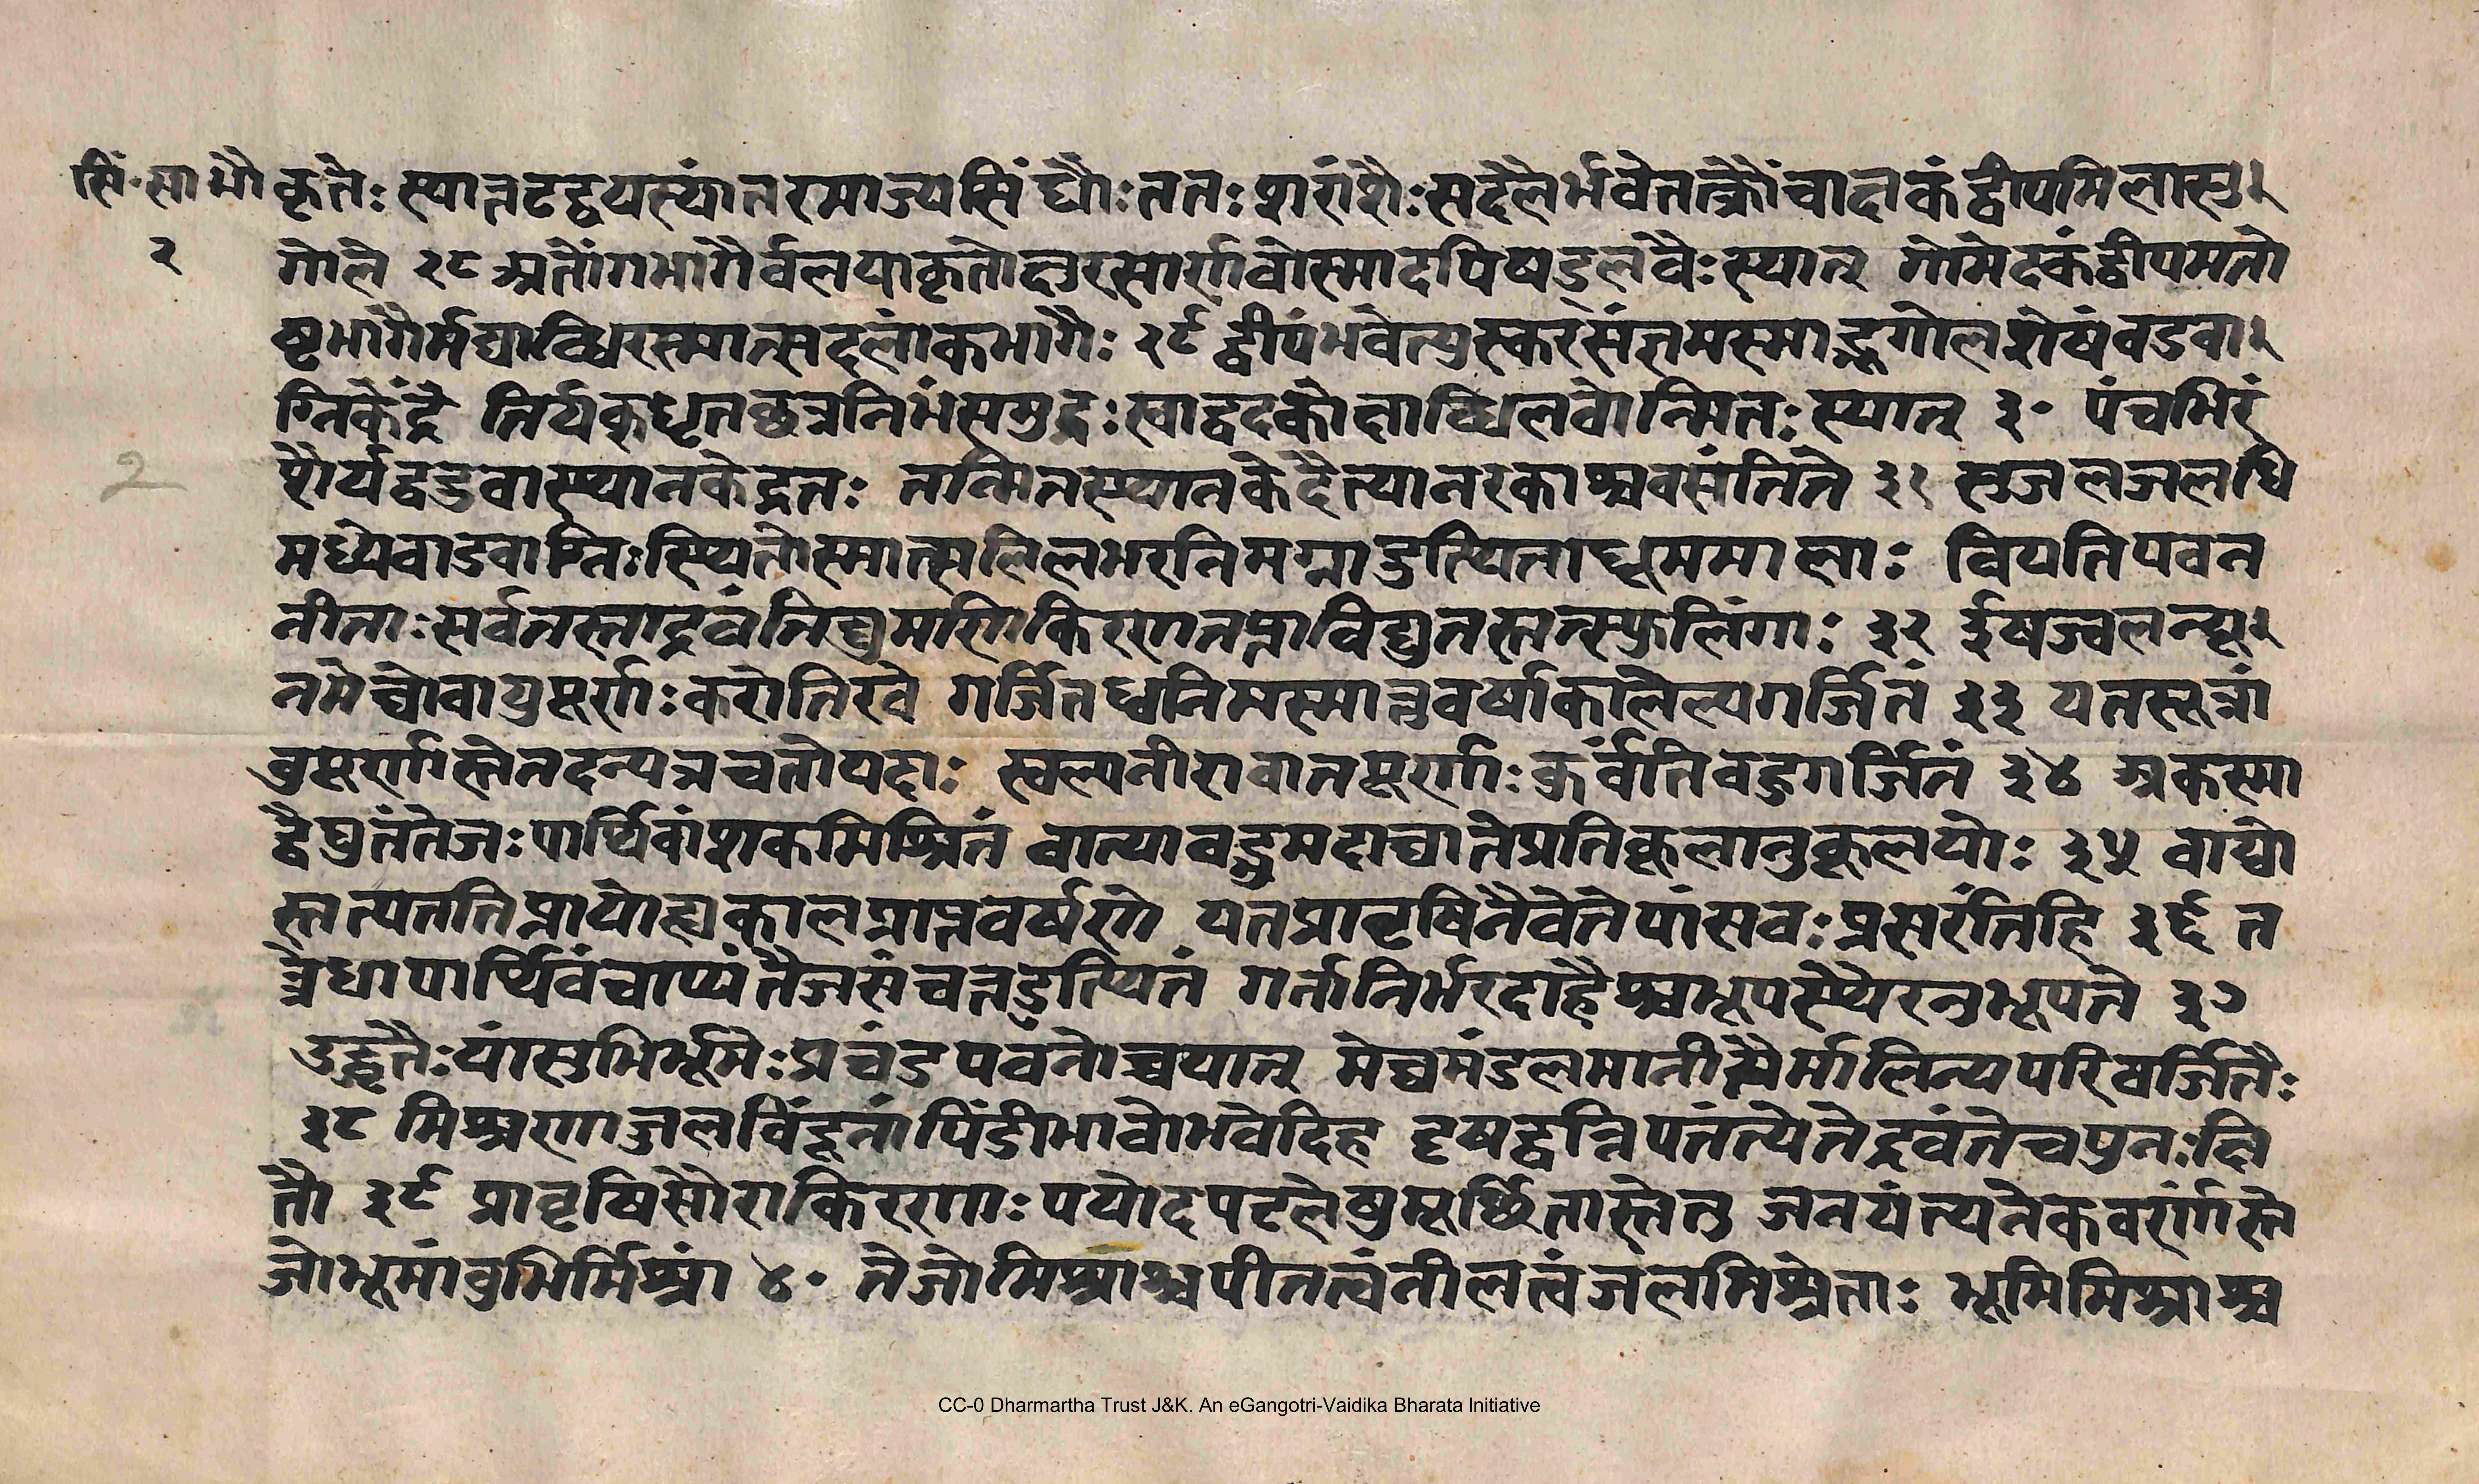 सिं.सा भौ कृतैः स्यात्तटद्वयस्यांतरमाज्यसिंधौः ततः शरांशैः सदलैर्भवेत्तत्क्रौंचाह्वकं द्वीपमिलासु
२ गोले २८ अतोंगभागैर्वलयाकृतीक्षुरसार्णवोस्मादपिषड्लवैः स्यात् गोमेदकंद्वीपमतो
ष्टभागैर्मद्याब्धिरस्मात्सदलांकभागैः २९ द्वीपंभवेत्पुस्करसंज्ञमस्माद्भूगोलशेषंवडवा
ग्निकेंद्रे तिर्यक्धृतछत्रनिभंसमुद्रः स्वाद्वदकोक्षाब्धिलवोन्मितः स्यात् ३० पंचभिरं
शैर्यद्वडवास्थानकेद्रतः तन्मितस्थानकेदैत्यानरकाश्चवसंतिते ३१ सुजलजलधि
मध्येवाडवाग्निः स्थितोस्मात्सलिलभरनिमग्नाडुत्थिताधूममालाः वियतिपवन
नीताः सर्वतस्ताद्रवंतिद्युमणिकिरणतप्ताविद्युतस्तत्स्फुलिंगाः ३२ ईषज्वलन्घू
तमेघोवायुपूर्णः करोतिखे गर्जितध्वनिमस्मान्नवर्षाकालेल्पगर्जितं ३३ यतस्तत्रां
बुपूर्णास्तेतदन्यत्रचतोयदाः स्वल्पनीरावातपूर्णाः कुर्वंतिवहुगर्जितं ३४ अकस्मा
द्वैद्युतंतेजः पार्थिवांशकमिश्रितं वात्यावद्भ्रमदाघातेप्रतिकूलानुकूलयोः ३५ वाय्वो
स्तत्पततिप्रायोह्यकालप्राप्तवर्षणे यतप्रावृषिनैवेतेपांसवः प्रसरंतिहि ३६ त
त्रेधापार्थिवंचाप्यंतैजसंचतडुत्थितं गर्तानिर्भरदाहैश्चभूपस्थैरनुभूयते ३७
उद्धृतैः पांसुभिर्भूमेः प्रचंडपवनोच्चयात् मेघमंडलमानीतैर्मालिन्यपरिवर्जितैः
३८ मिश्रणाज्जलविंदूनांपिंडीभावोभवेदिह दृषद्वन्निपतंत्येतेद्रवंतेचपुनः क्षि
तौ ३९ प्रावृषिसौराकिरणाः पयोदपटलेषुमूर्छितास्तेतु जनयंत्यनेकवर्णांस्ते
जोभूमांवुभिर्मिश्रां ४० तेजोमिश्राश्चपीतत्वंनीलत्वंजलमिश्रिताः भूमिमिश्राश्च
2
CC-0 Dharmartha Trust J&K. An eGangotri-Vaidika Bharata Initiative